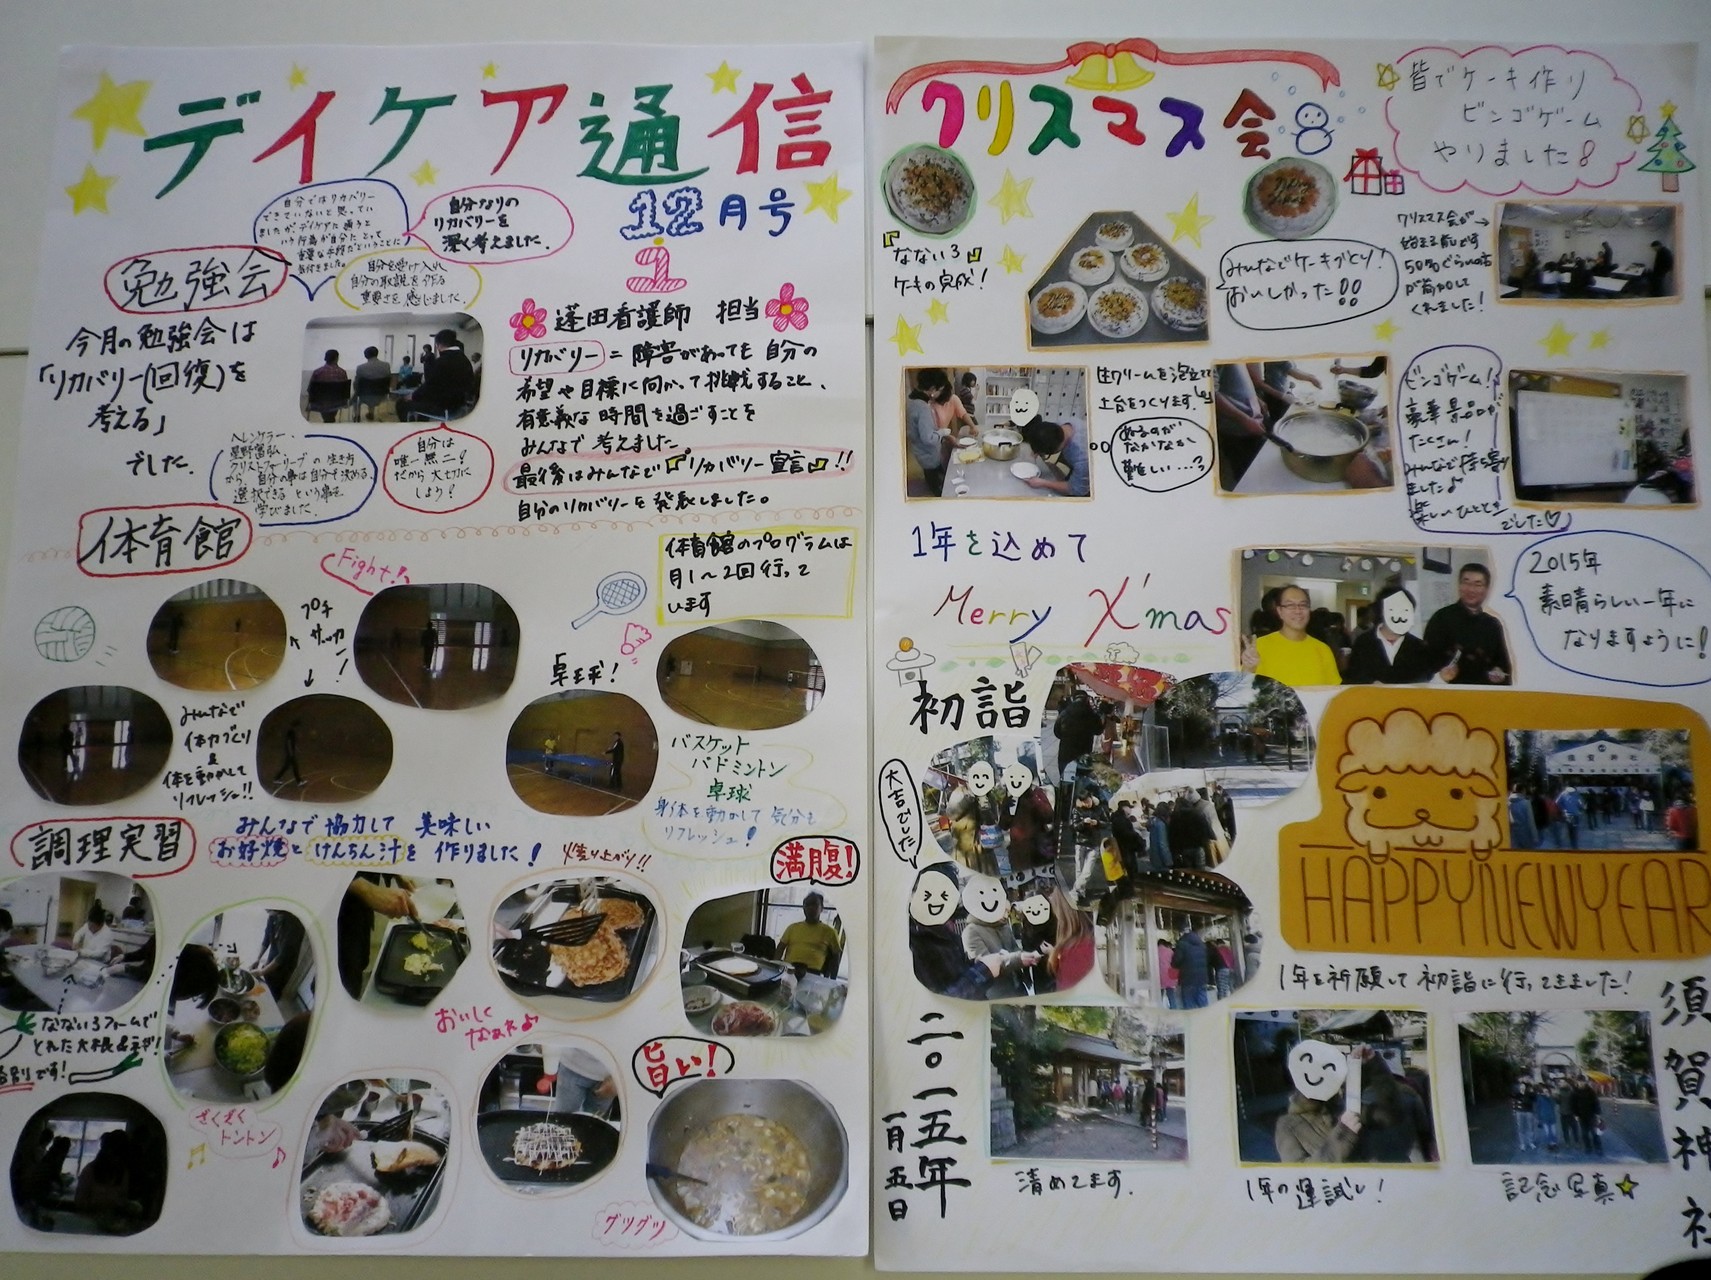 デイケア通信
12月号
1
勉強会
自分ではリカバリー
できていないと思ってい
ましたがデイケアに通うと
いう行為が自分にとって
重要な手段だということに
気付きました。
自分なりの
リカバリーを
深く考えました。
自分を受け入れ
自分の取説を作る
重要さを感じました。
今月の勉強会は
「リカバリー(回復)を
考える」
でした。
ヘレンケラー、
星野富弘
クリストファーリーブの生き方
から、自分の事は自分で決める、
選択できるという事を
学びました。
自分は
唯一無二!
だから大切に
しよう!
蓬田看護師 担当
リカバリー=障害があっても自分の
希望や目標に向かって挑戦すること、
有意義な時間を過ごすことを
みんなで考えました
最後はみんなで『リカバリー宣言』!!
自分のリカバリーを発表しました。
体育館
Fight!
プチ
サッカー!
みんなで
体力づくり
&
体を動かして
リフレッシュ!!
卓球!
体育館のプログラムは
月1〜2回行って
います
バスケット
バドミントン
卓球
身体を動かして気分も
リフレッシュ!
調理実習
みんなで協力して 美味しい
お好焼とけんちん汁を作りました!
焼き上がり!!
満腹!
なないろファームで
とれた大根&ネギ!
格別です!
ざくざく
トントン
おいしく
なぁれ♪
旨い!
グツグツ
クリスマス会
皆でケーキ作り
ビンゴゲーム
やりました!
『なないろ』
ケーキの完成!
みんなでケーキづくり!
おいしかった!!
クリスマス会が→
始まる前です
50名ぐらいの方
が参加して
くれました!
生クリームを泡立てて
土台をつくります。
ぬるのが
なかなか
難しい…?
ビンゴゲーム!
豪華景品が
たくさん!
みんなで持ち寄り
ました♪
楽しいひととき
でした♡
1年を込めて
Merry X'mas
2015年
素晴らしい一年に
なりますように!
初詣
大吉でした
HAPPYNEWYEAR
1年を祈願して初詣に行ってきました!
二〇一五年
一月五日
清めてます。
1年の運試し!
記念写真☆
須賀神社